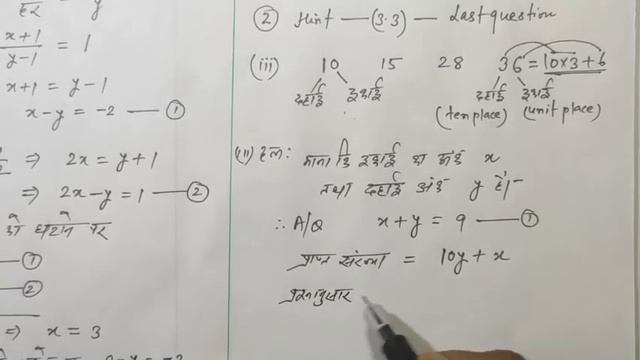 हर y
x+1
y-1 = 1
x+1 = y-1
x-y = -2 — ①
⇒ 2x = y+1
⇒ 2x-y = 1 — ②
को घटाने पर
— ①
— ②
⇒ x = 3
② Hint — (3.3) — Last question
(iii) 10 15 28 36 = 10×3+6
दहाई इकाई दहाई इकाई
(ten place) (unit place)
(ii) हल: माना कि इकाई का अंक x
तथा दहाई अंक y है।
∴ A/Q x+y = 9 — ①
प्राप्त संख्या = 10y + x
प्रश्नानुसार